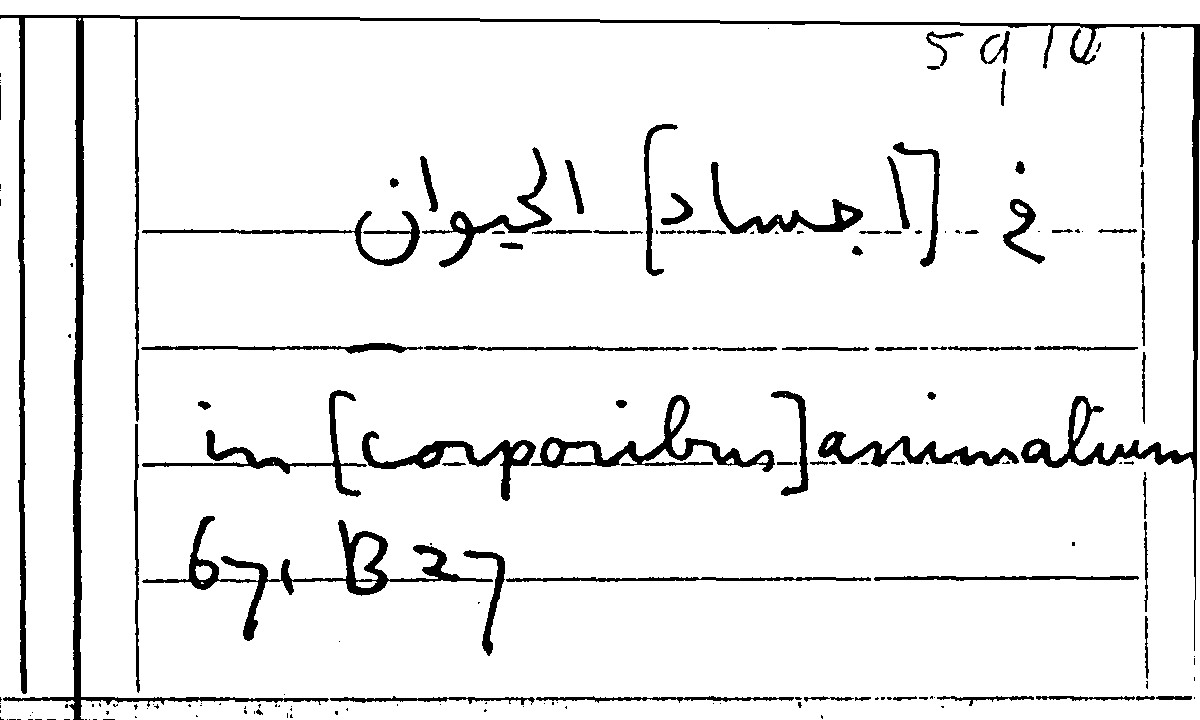 في [اجساد] الحيوان
in [corporibus] animalium
671 B 27